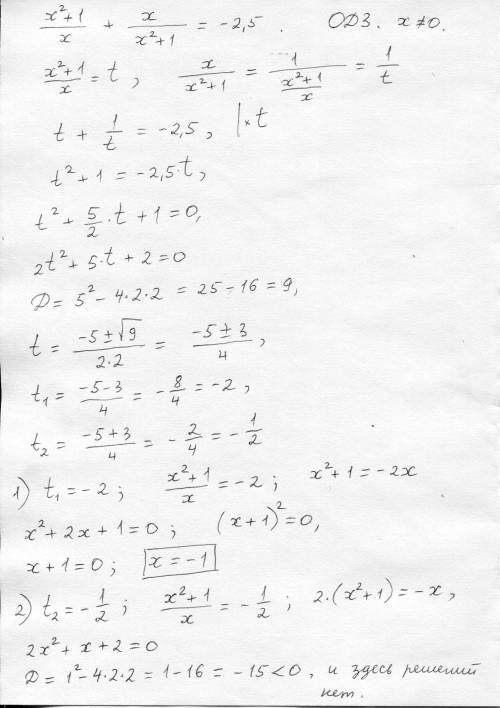 (x²+1)/x + x/(x²+1) = -2,5. ОДЗ. x≠0.
(x²+1)/x = t, x/(x²+1) = 1/((x²+1)/x) = 1/t
t + 1/t = -2,5, |×t
t²+1 = -2,5·t,
t² + 5/2·t + 1 = 0,
2t² + 5·t + 2 = 0
D = 5² - 4·2·2 = 25 - 16 = 9,
t = (-5±√9)/(2·2) = (-5±3)/4,
t₁ = (-5-3)/4 = -8/4 = -2,
t₂ = (-5+3)/4 = -2/4 = -1/2
1) t₁ = -2; (x²+1)/x = -2; x²+1 = -2x
x²+2x+1=0; (x+1)²=0,
x+1=0; x=-1
2) t₂ = -1/2; (x²+1)/x = -1/2; 2·(x²+1) = -x,
2x²+x+2=0
D = 1²-4·2·2 = 1-16 = -15<0, и здесь решений
нет.